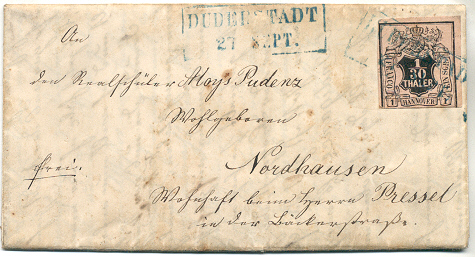 DUDERSTADT
27 SEPT.
1
30
THALER
HANNOVER
An
den Realschüler Aloys Pudenz
Wohlgeboren
frei.
Nordhausen
Wohnhaft beim Herrn Pressel
in der Bäckerstraße.